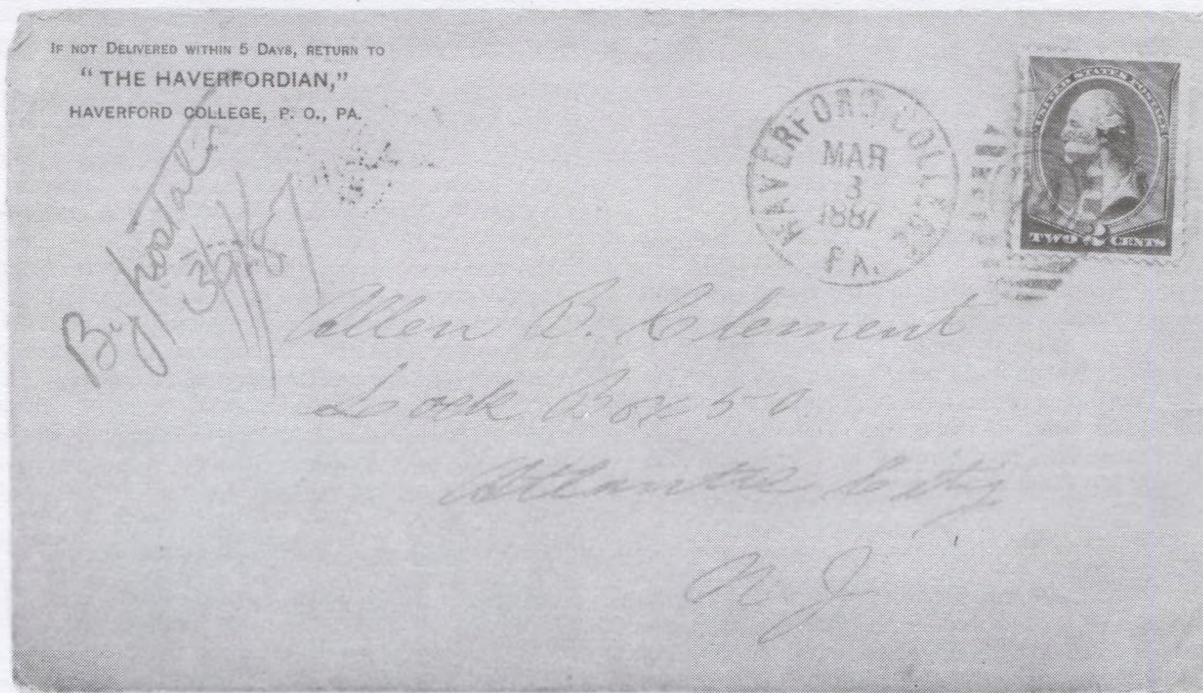 IF NOT DELIVERED WITHIN 5 DAYS, RETURN TO
"THE HAVERFORDIAN,"
HAVERFORD COLLEGE, P. O., PA.
By postal
HAVERFORD COLLEGE
MAR
3
1887
PA.
UNITED STATES POSTAGE
TWO 2 CENTS
Allen B. Clement
Lock Box 50
Atlantic City
N. J.